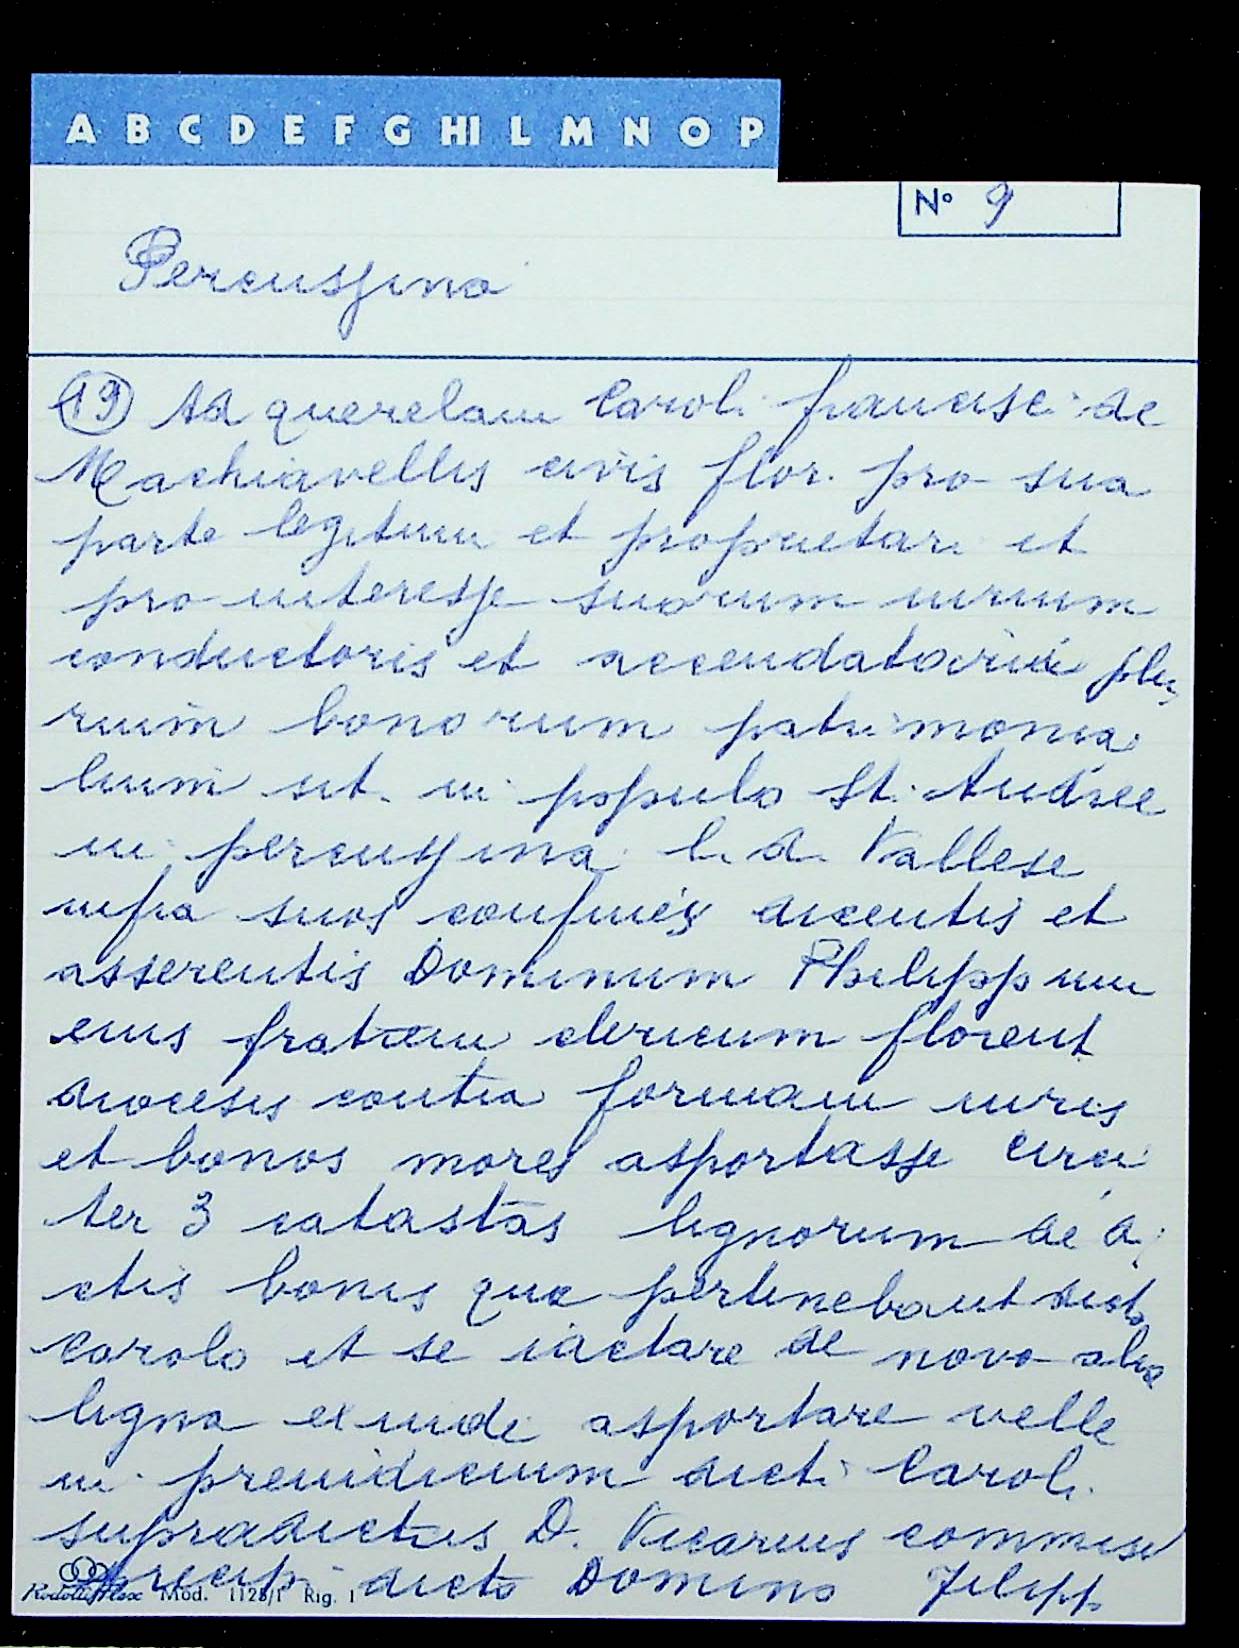 A B C D E F G HI L M N O P
N° 9
Percussina
(19) Ad querelam Caroli francisci de
Machiavellis civis flor. pro sua
parte legitim et proprietari et
pro interesse suorum iurium
conductoris et accendatarii plu
rium bonorum patrimonia
lium sit. in populo St. Andree
in percussina l. d. Vallese
infra suos confines dicentis et
asserentis Dominum Philippum
eius fratrem clericum florent
diocesis contra formam iuris
et bonos mores asportasse circi
ter 3 catastas lignorum de di
ctis bonis que pertinebant dicto
Carolo et se iactare de novo alia
ligna exinde asportare velle
in preiudicium dicti Caroli
supradictus D. Vicarius commisit
precip. dicto Domino Filipp.
Mod. 1128/1 Rig. 1